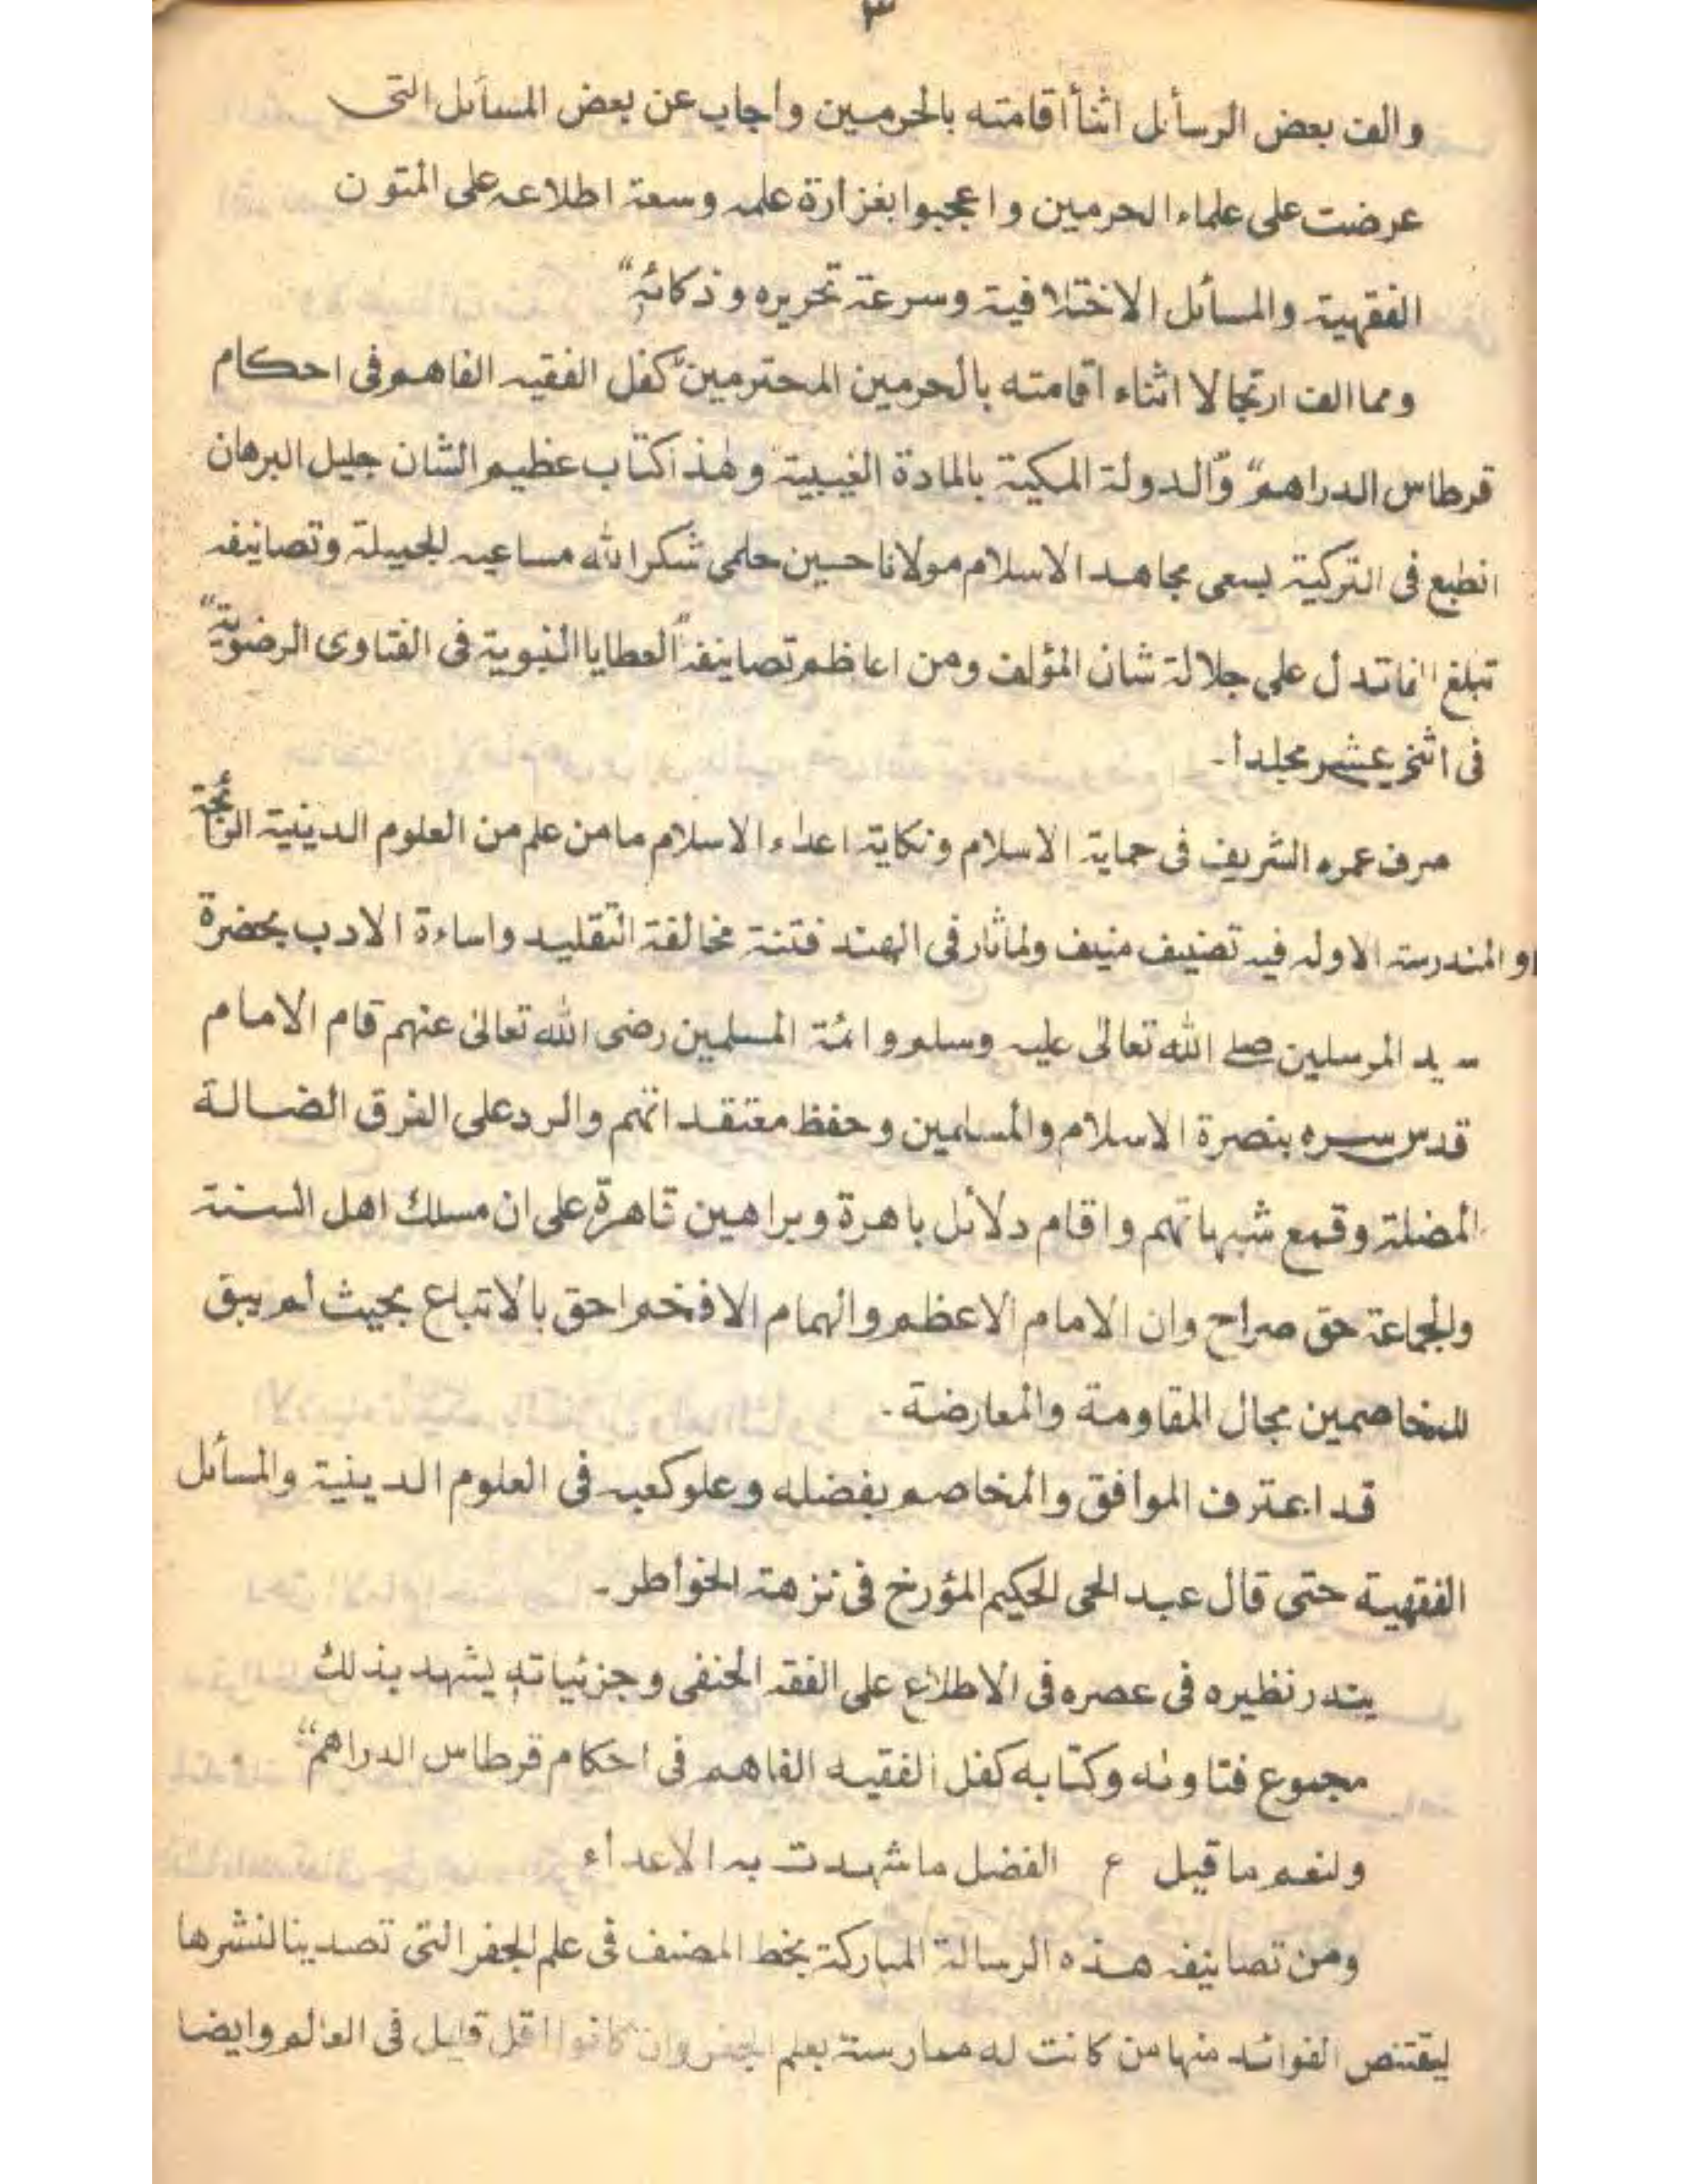 ٣
والف بعض الرسأئل اثنأ اقامته بالحرمين وأجاب عن بعض المسأئل التى
عرضت على علماء الحرمين واعجبوا بغزارة علمه وسعة اطلاعه على المتون
الفقهية والمسأئل الاختلافية وسرعة تحريره وذكائه“
ومما الف ارتجالا اثناء اقامته بالحرمين المحترمين ”كفل الفقيه الفاهم فى احكام
قرطاس الدراهم“ و”الدولة المكية بالمادة الغيبية وهذا كتاب عظيم الشان جليل البرهان
انطبع فى التركية بسعى مجاهد الاسلام مولانا حسين حلمى شكر الله مساعيه الجميلة وتصانيفه
تبلغ الفا تدل على جلالة شان المؤلف ومن اعاظم تصانيفه ”العطايا النبوية فى الفتاوى الرضوية“
فى اثنى عشر مجلدا۔
صرف عمره الشريف فى حماية الاسلام ونكاية اعداء الاسلام ما من علم من العلوم الدينية الرائجة
او المندرسة الا وله فيه تصنيف منيف ولما ثار فى الهند فتنة مخالفة التقليد واساءة الادب بحضرة
سيد المرسلين صلے الله تعالى عليه وسلم وائمة المسلمين رضى الله تعالى عنهم قام الامام
قدس سره بنصرة الاسلام والمسلمين وحفظ معتقداتهم والرد على الفرق الضالة
المضلة وقمع شبهاتهم واقام دلائل باهرة وبراهين قاهرة على ان مسلك اهل السنة
والجماعة حق صراح وان الامام الاعظم والهمام الافخم احق بالاتباع بحيث لم يبق
للمخاصمين مجال المقاومة والمعارضة۔
قد اعترف الموافق والمخاصم بفضله وعلو كعبه فى العلوم الدينية والمسأئل
الفقهية حتى قال عبد الحى الحكيم المؤرخ فى نزهة الخواطر۔
يندر نظيره فى عصره فى الاطلاع على الفقه الحنفى وجزئياته يشهد بذلك
مجموع فتاوٰه وكتابه كفل الفقيه الفاهم فى احكام قرطاس الدراهم“
ولنعم ما قيل ع الفضل ما شهدت به الاعداء
ومن تصانيفه هذه الرسالة المباركة بخط المصنف فى علم الجفر التى تصدينا لنشرها
ليقتنص الفوائد منها من كانت له ممارسة بعلم الجفر وان كانوا اقل قليل فى العالم وايضا